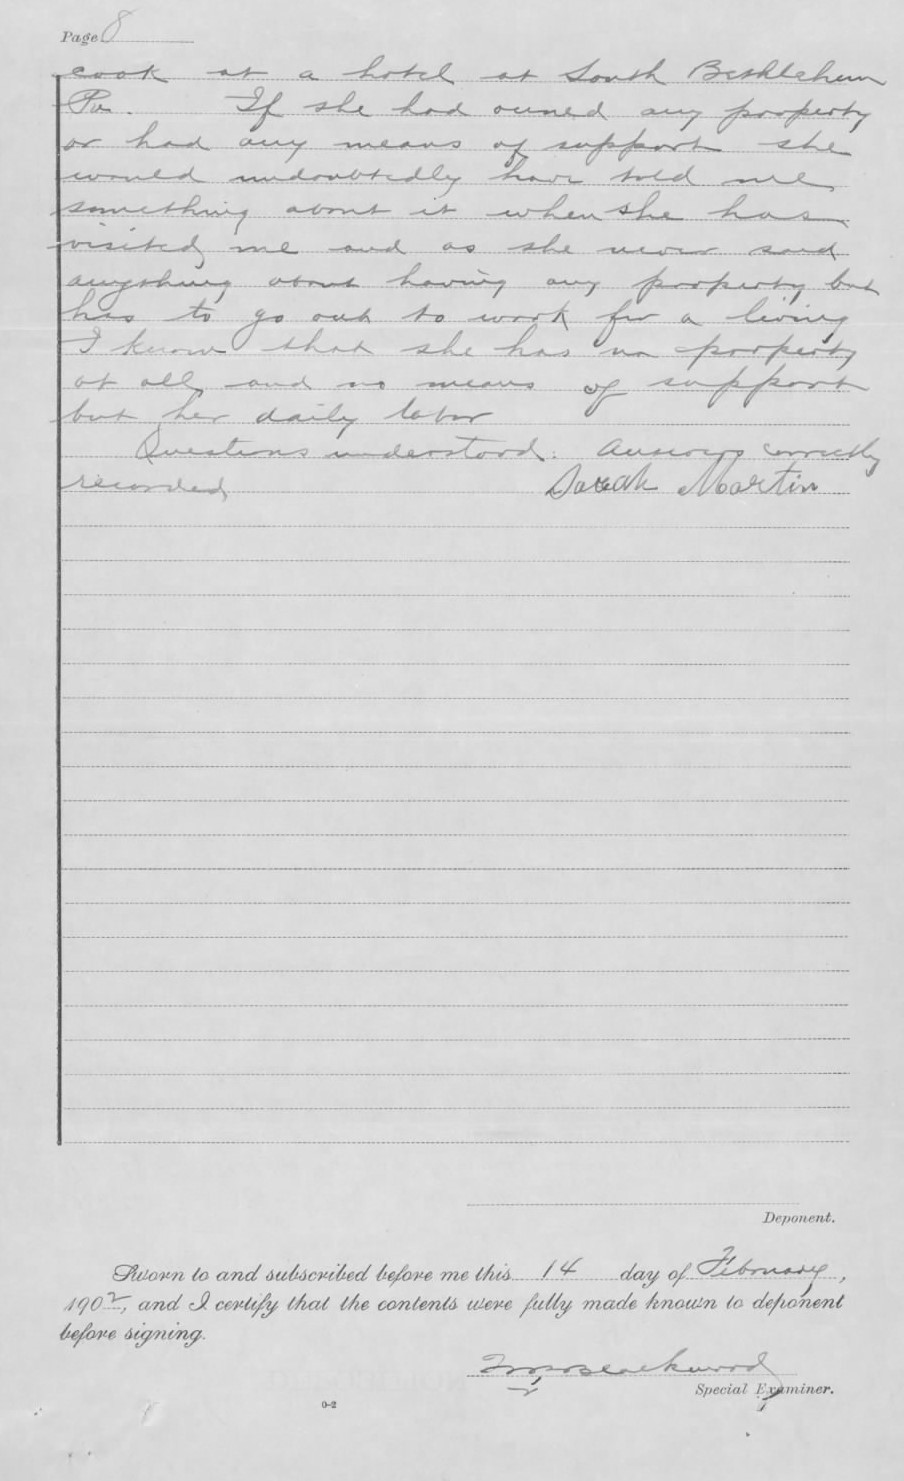 Page 8
cook at a hotel at South Bethlehem
Pa. If she had owned any property
or had any means of support she
would undoubtedly have told me
something about it when she has
visited me and as she never said
anything about having any property but
has to go out to work for a living
I know that she has no property
at all and no means of support
but her daily labor
Questions understood. Answers correctly
recorded Sarah Martin
Deponent.
Sworn to and subscribed before me this 14 day of February,
1902, and I certify that the contents were fully made known to deponent
before signing.
Blackwood
Special Examiner.
0-2